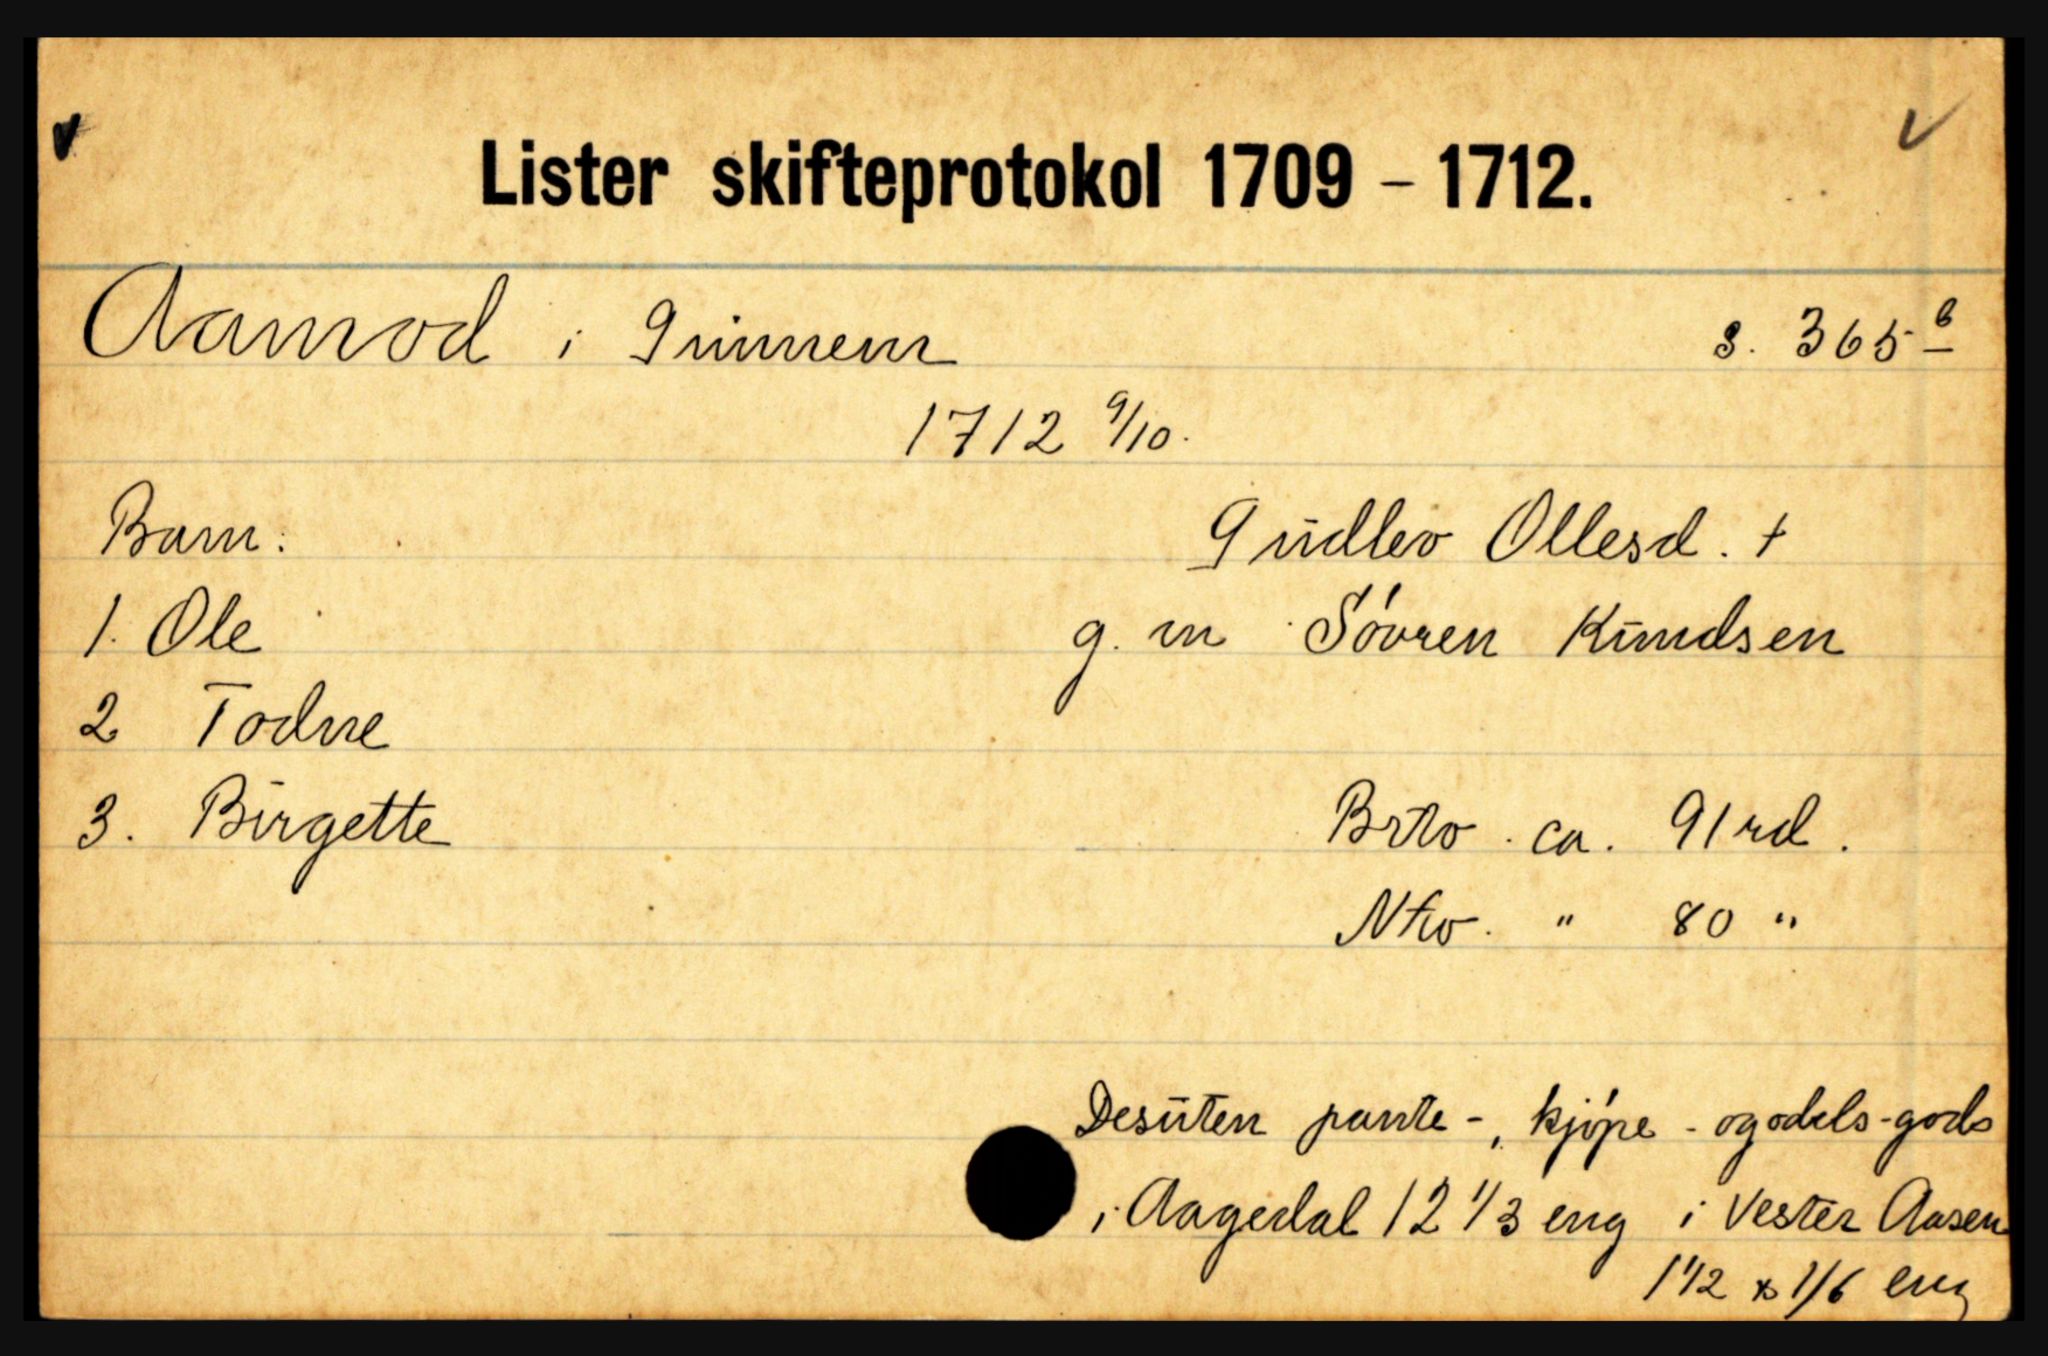 Lister skifteprotokol 1709 – 1712.
Aamod i Guinnem s. 365 b
1712 9/10.
Barn: Gudlev Ollesd. +
1. Ole g. m Sóvren Knudsen
2 Todne
3. Birgette Brto. ca. 91 rd.
Nto. " 80 "
Desuten pante-, kjópe- og odels-gods
i Aagedal 12 1/3 eng i Vester Aasen
1 1/2 ⅌ 1/6 eng